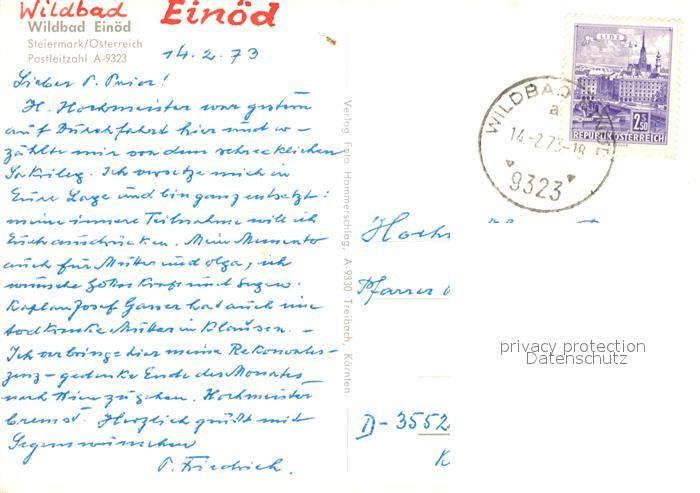 Wildbad Einöd
Wildbad Einöd
Steiermark/Österreich
Postleitzahl A-9323
14.2.73
Lieber P. Prior!
H. Hochmeister war gestern
auf Durchfahrt hier und er-
zählte mir von dem schrecklichen
Sakrileg. Ich versetze mich in
Eure Lage und bin ganz entsetzt:
meine innere Teilnahme will ich
Euch ausdrücken. Mein Memento
auch für Mutter und Olga, ich
wünsche Gottes Kraft und Segen.
Kaplan Josef Gasser hat auch eine
todkranke Mutter in Klausen. -
Ich verbringe hier meine Rekonvales-
zenz - gedenke Ende des Monates
nach Wien zu gehen. Hochmeister
Herzlich grüßt mit
Segenswünschen
P. Friedrich.
Verlag Foto Hammerschlag, A-9330 Treibach, Kärnten
LINZ
2.50
REPUBLIK ÖSTERREICH
WILDBAD
a
14-2.73-18
9323
Hoch
Pfarrer
D-3552
privacy protection
Datenschutz